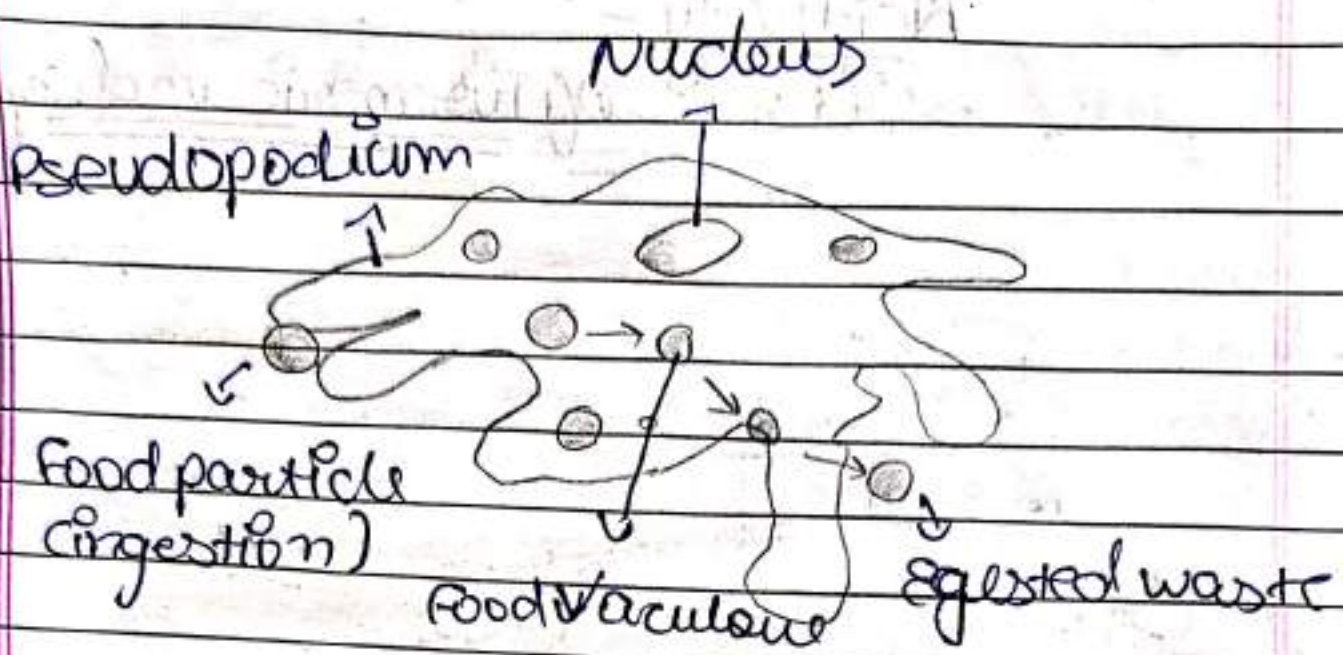 Nucleus
Pseudopodium
Food particle
(ingestion)
Food Vaculoue
Egested waste